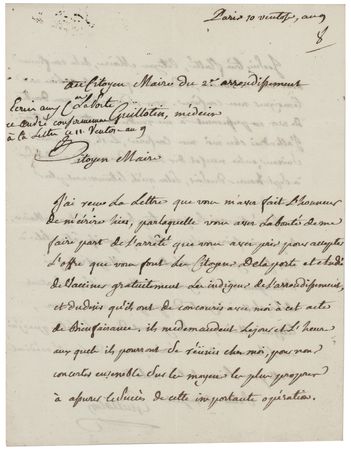 Paris 10 ventose, an 9
8
au Citoyen Maire du 2e arrondissement
Ecrire aux Cen La Porte
et audié conformément Guillotin, médecin
à la Lettre ce 11 Ventose an 9
Citoyen Maire
J'ai reçu la Lettre que vous m'avez fait L'honneur
de m'écrire hier, par laquelle vous avez La bonté de me
faire part de l'arrêté que vous avez pris pour accepter
L'offre que vous font les Citoyens Delaporte et Audié
de Vacciner gratuitement les indigens de l'arrondissement,
et du desir qu'ils ont de concourir avec moi à cet acte
de Bienfaisance, ils me demandent Le jour et L'heure
aux quels ils pourront se réunir chez moi, pour nous
concerter ensemble sur les moyens les plus propres
à assurer le succès de cette importante opération.